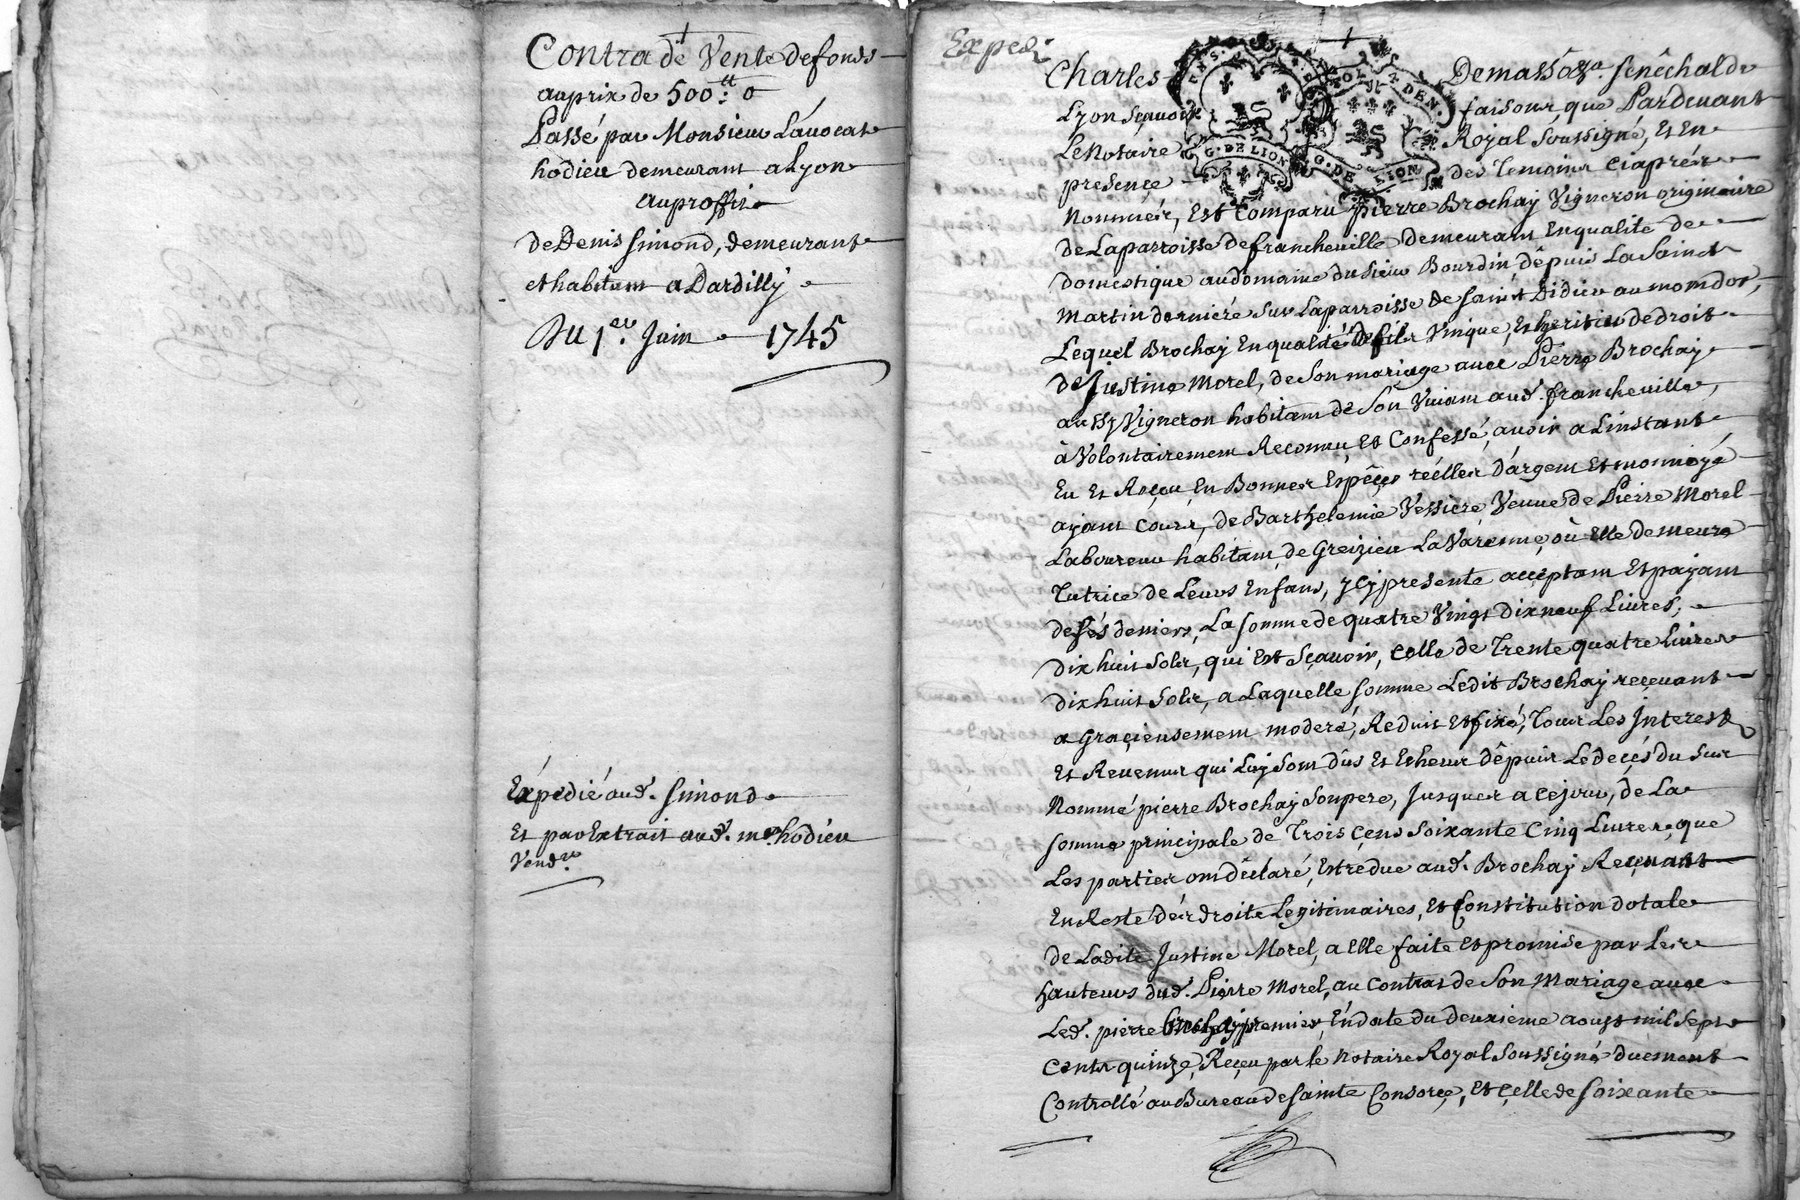 Contra de Vente de fonds
au prix de 500 tt: 0
Passé par Monsieur Lavocat
hodieu demeurant a Lyon
au proffit
de Denis Simond, demeurant
et habitant a Dardilly
Du 1er. Juin 1745
Expédié aud. Simond
Et par Extrait aud. mr. hodieu
Vendr.
Exped:
Charles Demassô sénéchal de
Lyon sçavoir faisons, que Pardevant
Le Notaire Royal Soussigné, Et En
presençe des Temoins Ciaprés
G. DE LION
G. DE LION
Nommés, Est Comparu pierre Brochay Vigneron originaire
de Laparroisse de francheville Demeurant Enqualité de
domestique audomaine du sieur Bourdin, dêpuis La Saint
Martin derniére sur Laparroisse de Saint Didier au mondor,
Lequel Brochay Enqualité de fils Unique, Et heritier dedroit
de Justine Morel, de Son mariage avec Pierre Brochay
aussy Vigneron habitant de Son Vivant aud. francheville,
à Volontairement Reconnu, Et Confessé, avoir a Linstant
Eu Et Reçou, En Bonnes Espêçes réelles D'argent Et monnoyé
ayant Cours, de Barthelemie Vessiere Veuve de Pierre Morel
Laboureur habitant de Greizieu LaVarenne, où Elle demeure
Tutrice de Leurs Enfans, ycy presente acçeptant Et payant
de Sés deniers, La somme de quatre Vingt Dixneuf Livres,
dix huit Sols, qui Est Sçavoir, Celle de Trente quatre Livres
dix huit Sols, a Laquelle somme Ledit Brochay reçevant
a Graçieusement moderé, Reduit Et fixé, Tous Les Interest
Et Revenus qui Luy Sont Dûs Et Echeus Dêpuis Le deçés du Sus
Nommé pierre Brochay Sonpere, Jusques a cejour, de La
somme principale de Trois Çens Soixante Cinq Livres, que
Les parties ont déclaré, Estre due aud. Brochay Reçevant
En Reste dés droits Legitimaires, Et Constitution dotale
de Ladite Justine Morel, a Elle faite Et promise par Les
hauteurs dud. Pierre Morel, au Contrat de Son Mariage avec
Led. pierre Brochay premier, En date du deuxieme aoust mil Sept
cents quinze, Reçeu par le Notaire Royal Soussigné duëment
Controllé au Bureau de Sainte Consorçe, Et Çelle de Soixante